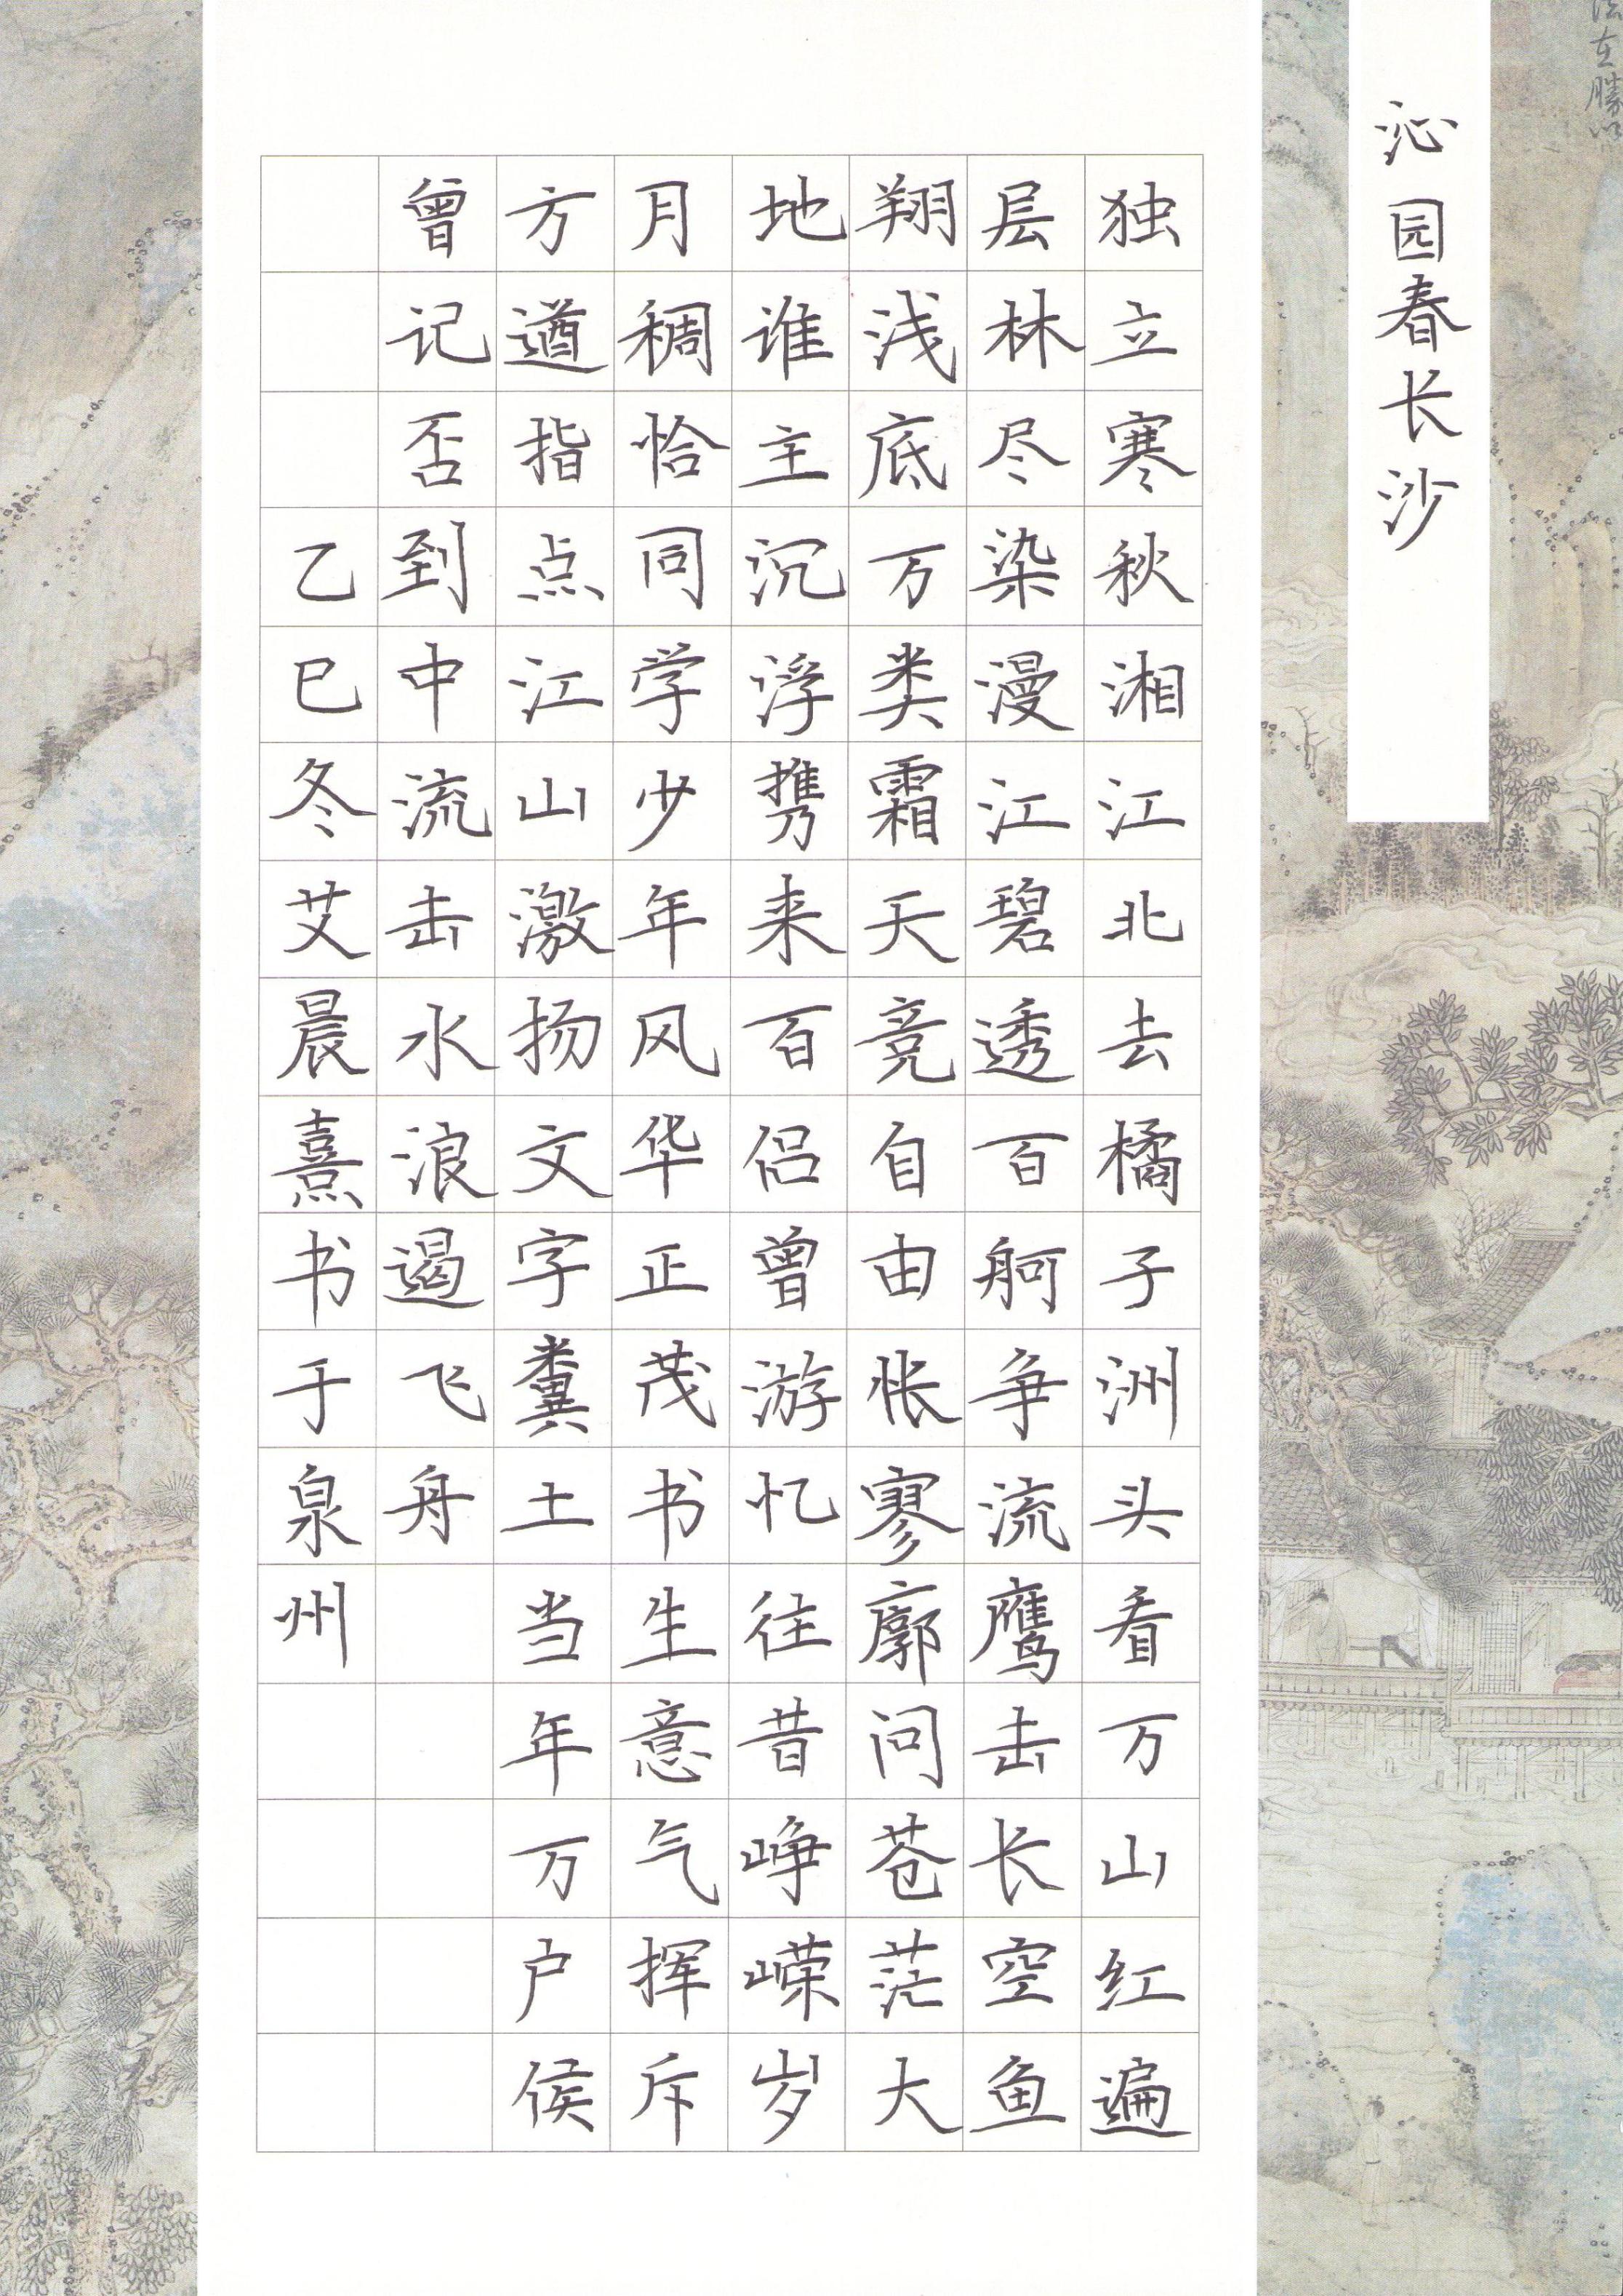 沁园春长沙
独立寒秋湘江北去橘子洲头看万山红遍
层林尽染漫江碧透百舸争流鹰击长空鱼
翔浅底万类霜天竞自由怅寥廓问苍茫大
地谁主沉浮携来百侣曾游忆往昔峥嵘岁
月稠恰同学少年风华正茂书生意气挥斥
方遒指点江山激扬文字粪土当年万户侯
曾记否到中流击水浪遏飞舟
乙巳冬艾晨熹书于泉州